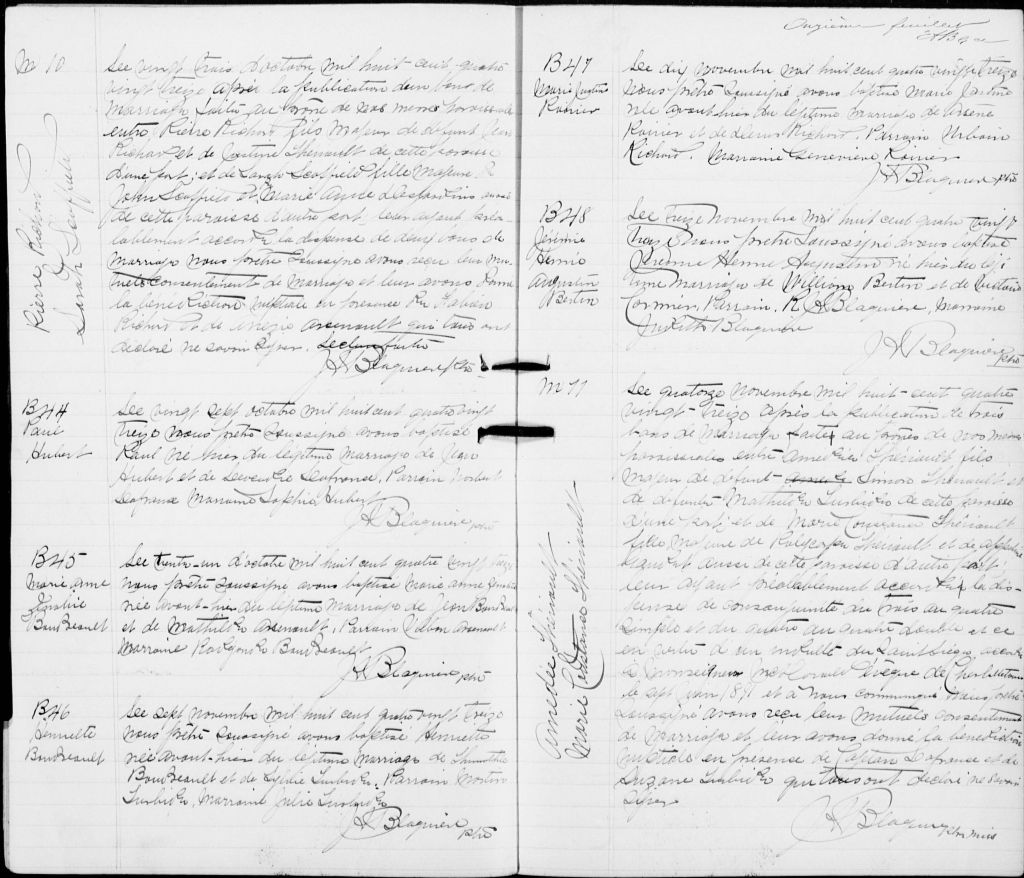 M 10
Pierre Richard
&
Sarah Scoffield
Le vingt trois d'octobre mil huit-cent-quatre
vingt treize après la publication d'un banc de
mariage faite au prône de nos messes paroissiales
entre Pierre Richard fils majeur de défunt Jean
Richard et de Thériault de cette paroisse
d'une part; et de Sarah Scoffield fille majeure de
John Scoffield et Marie Anne Desjardins aussi
de cette paroisse d'autre part, leur ayant préa-
lablement accordé la dispense de deux bancs de
mariage nous prêtre soussigné avons reçu leur mu-
tuel consentement de mariage et leur avons donné
la bénédiction nuptiale en présence de Fabien
Richard et de Arsenault qui tous ont
déclaré ne savoir signer. Lecture faite
J A Blaquiere ptre
B 44
Paul
Hubert
Le vingt sept octobre mil huit cent quatre vingt
treize nous prêtre soussigné avons baptisé
Paul né hier du légitime mariage de Jean
Hubert et de Lafrance, Parrain Norbert
Lafrance Marraine Sophie Hubert
J A Blaquiere ptre
B 45
Marie Anne
Boudreault
Le trente-un d'octobre mil huit cent quatre vingt treize
nous prêtre soussigné avons baptisé Marie Anne
née avant-hier du légitime mariage de Jean Boudreault
et de Mathilde Arsenault, Parrain Arsenault
Marraine Boudreault
J A Blaquiere ptre
B 46
Henriette
Boudreault
Le sept novembre mil huit cent quatre vingt treize
nous prêtre soussigné avons baptisé Henriette
née avant-hier du légitime mariage de Timothé
Boudreault et de Lydie Turbide. Parrain
Turbide, Marraine Julie Turbide
J A Blaquiere ptre
Onzième feuillet
B 47
Marie
Le dix novembre mil huit cent quatre vingt treize
nous prêtre soussigné avons baptisé Marie
née avant-hier du légitime mariage de Arsène
et de Richard. Parrain Urbain
Richard. Marraine Geneviève
J A Blaquiere ptre
B 48
Jérémie
Henri
Augustin
Berlin
Le treize novembre mil huit cent quatre vingt
treize nous prêtre soussigné avons baptisé
Jérémie Henri Augustin né hier du légi-
time mariage de William Berlin et de
Cormier, Parrain, R A Blaquiere, Marraine
Judith Blaquiere
J A Blaquiere ptre
M 11
Amédée Thériault
&
Marie Constance Thériault
Le quatorze novembre mil huit-cent quatre
vingt-treize après la publication de trois
bans de mariage faites au prônes de nos messes
paroissiales entre Amédée Thériault fils
majeur de défunt Simon Thériault et
de défunte Mathilde Turbide de cette paroisse
d'une part, et de Marie Constance Thériault
fille majeure de Polycarpe Thériault et de
aussi de cette paroisse d'autre part;
leur ayant préalablement accordé la dis-
pense de consanguinité du trois au quatre
simple et du quatre au quatre double et ce
en vertu d'un indult du Saint Siège accordé
à Monseigneur McDonald évêque de Charlottetown
le sept juin 1891 et à nous communiqué nous prêtre
soussigné avons reçu leur mutuels consentement
de mariage et leur avons donné la bénédiction
nuptiale en présence de Lafrance et de
Suzane Turbide qui tous ont déclaré ne savoir
signer
J A Blaquiere ptre miss